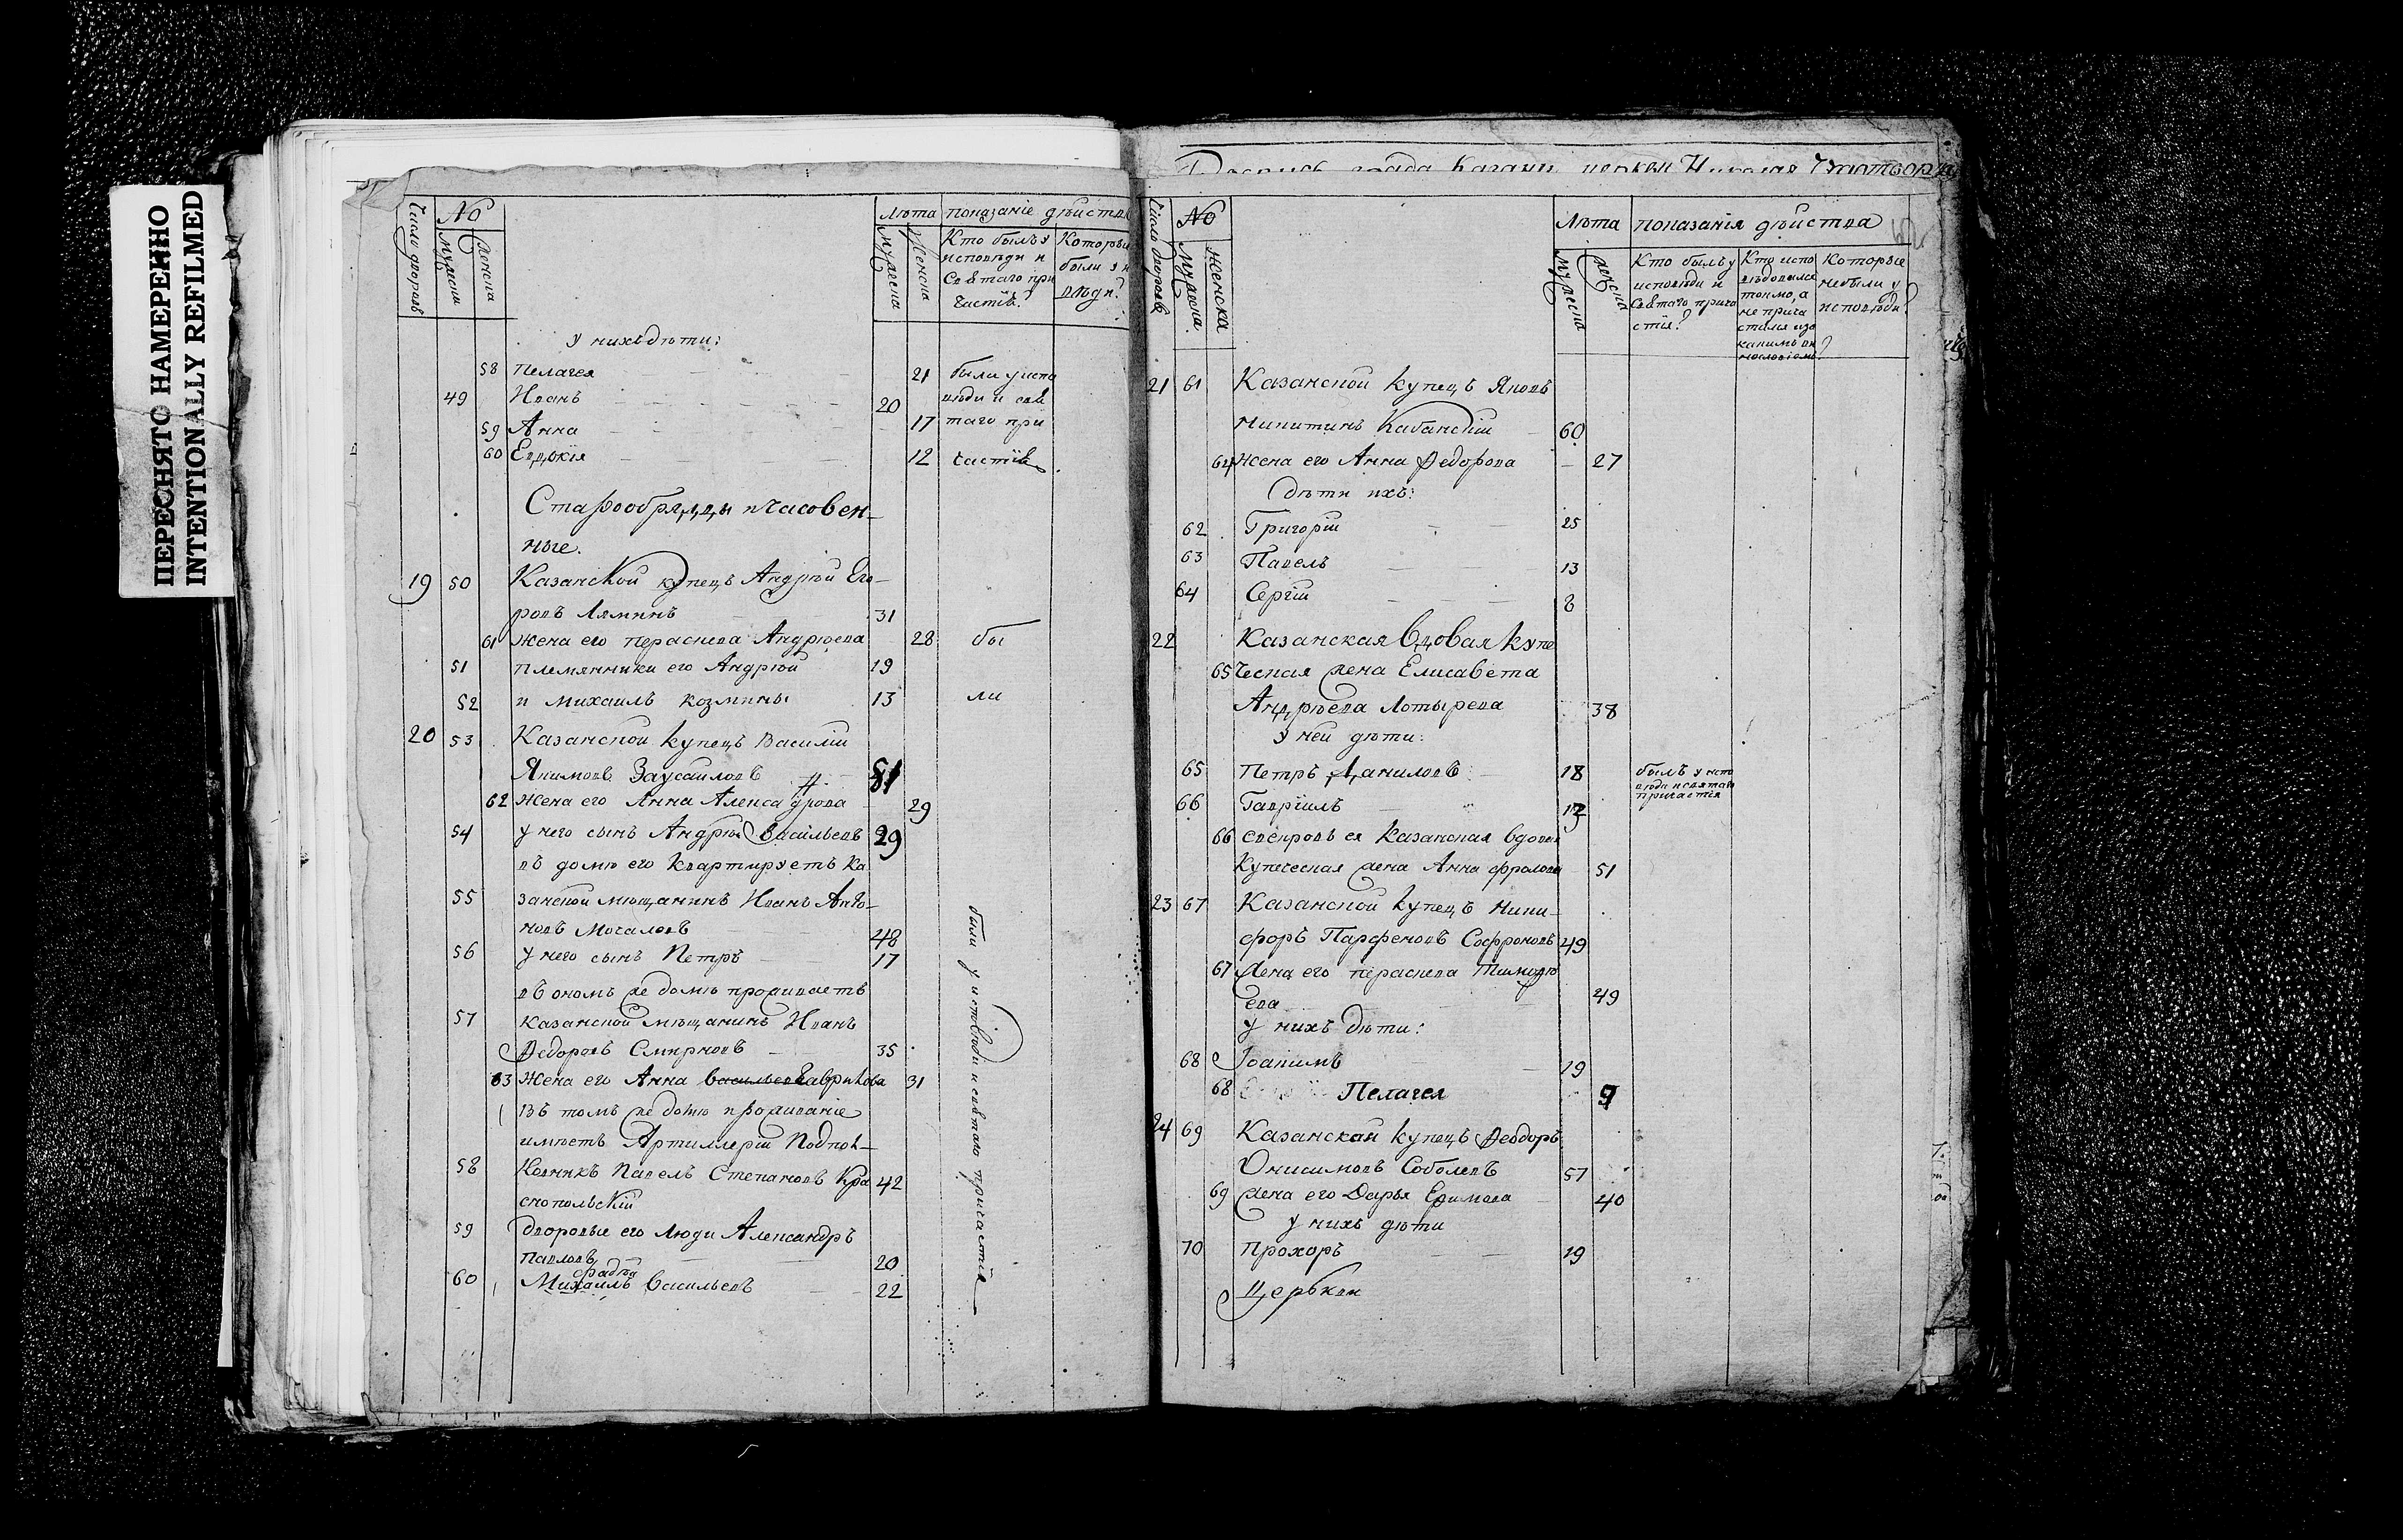 ПЕРЕСНЯТО НАМЕРЕННО
INTENTIONALLY REFILMED
Число дворовъ
No
Мужеска
Женска
Лѣта
показанiе дѣйства
Мужеска
Женска
Кто былъ у
исповѣди и
Святаго при
частiя?
Которы
были у и
вѣди?
у нихъ дѣти:
58 Пелагея 21 были у испо
49 Иванъ 20 вѣди и свя
59 Анна 17 таго при
60 Евдокiя 12 частiя
Старообрядцы и часовен-
ные.
19 50 Казанской купецъ Андрѣй Его-
ровъ Ляминъ 31
61 Жена его Параскева Андрѣева 28 бы
51 племянники его Андрѣй 19
52 и Михаилъ Козмины 13 ли
20 53 Казанской купецъ Василiй
Якимовъ Заусаиловъ 51
62 Жена его Анна Александрова 29
54 у него сынъ Андрѣй Васильевъ 29
въ домѣ его квартируетъ Ка
55 занской мѣщанинъ Иванъ Анто-
новъ Мочаловъ 48
56 у него сынъ Петръ 17
въ ономъ же домѣ проживаетъ
57 Казанской мѣщанинъ Иванъ
Ѳедоровъ Смирновъ 35
63 Жена его Анна Васильев Гаврилова 31
Въ томъ же домѣ проживанiе
имѣетъ Артиллерiи Подпол-
58 Ковникъ Павелъ Степановъ Кра 42
снопольскiй
59 дворовые его люди Александръ
Павловъ 20
60 Михаилъ Васильевъ 22
были у исповѣди и святаго причастiя
Роспись града Казани церкви Николая Чудотворц
Число дворовъ
No
Мужеска
Женска
Лѣта
показанiя дѣйства
мужеска
женска
Кто былъ у
исповѣди и
Святаго прича
стiя?
Кто испо
вѣдовался
токмо, а
не прича
стился и по
какимъ ви
нословiемъ?
Которые
небыли у
исповѣди?
21 61 Казанской купецъ Яковъ
Никитинъ Кабанскiй 60
64 Жена его Анна Ѳедорова 27
дѣти ихъ:
62 Григорiй 25
63 Павелъ 13
64 Сергiй 8
22 Казанская вдовая купе
65 ческая жена Елисавета
Андрѣева Лотырева 38
у ней дѣти:
65 Петръ Даниловъ 18 былъ у испо
вѣди и святаго
причастiя
66 Гаврiилъ 12
66 свекровь ея Казанская вдовая
купеческая жена Анна Фролова 51
23 67 Казанской купецъ Ники-
форъ Парфеновъ Софроновъ 49
67 Жена его Параскева Тимоѳѣ
ева 49
у нихъ дѣти:
68 Iоакимъ 19
68 Пелагея 9
24 69 Казанской купецъ Ѳеодоръ
Онисимовъ Соболевъ 57
69 жена его Дарья Ефимова 40
у нихъ дѣти
70 Прохоръ 19
Церькви